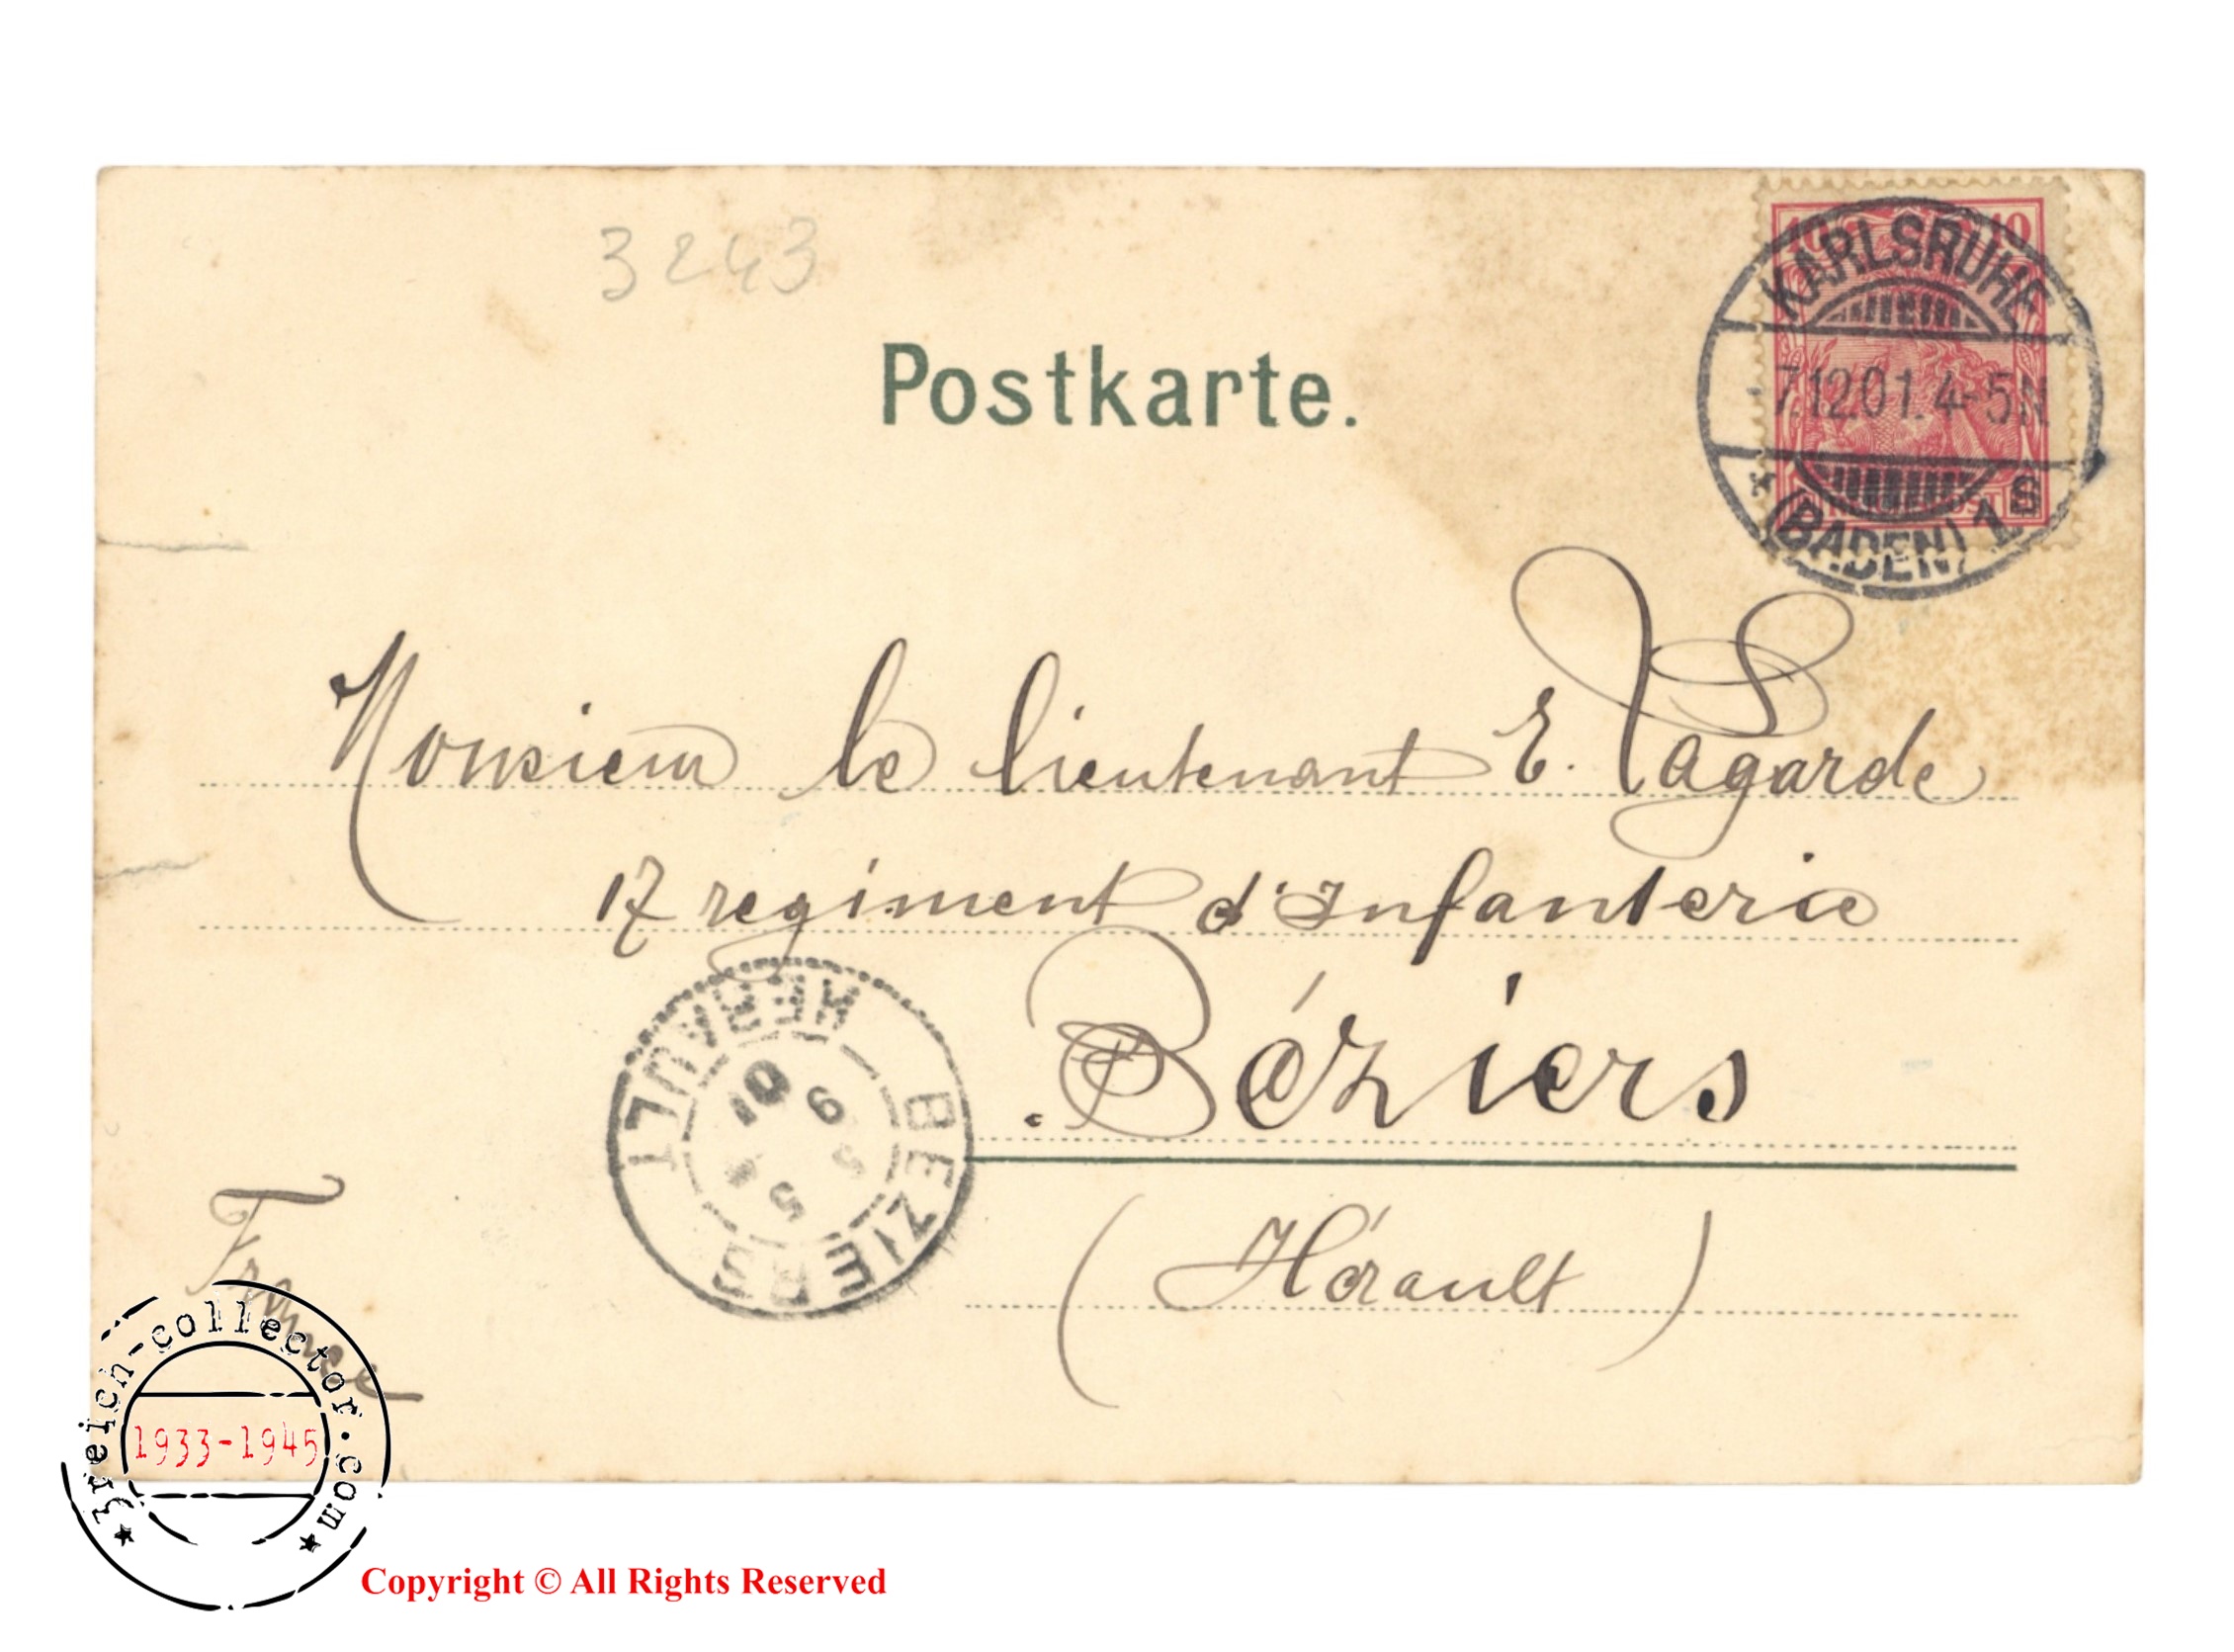 3243
Postkarte.
10 10
KARLSRUHE
7.12.01.4-5N
* (BADEN) 1. S
Monsieur le lieutenant E. Lagarde
17 regiment d'Infanterie
Béziers
(Hérault)
France
BEZIERS
HERAULT
9
01
3reich-collector.com
1933-1945
Copyright © All Rights Reserved